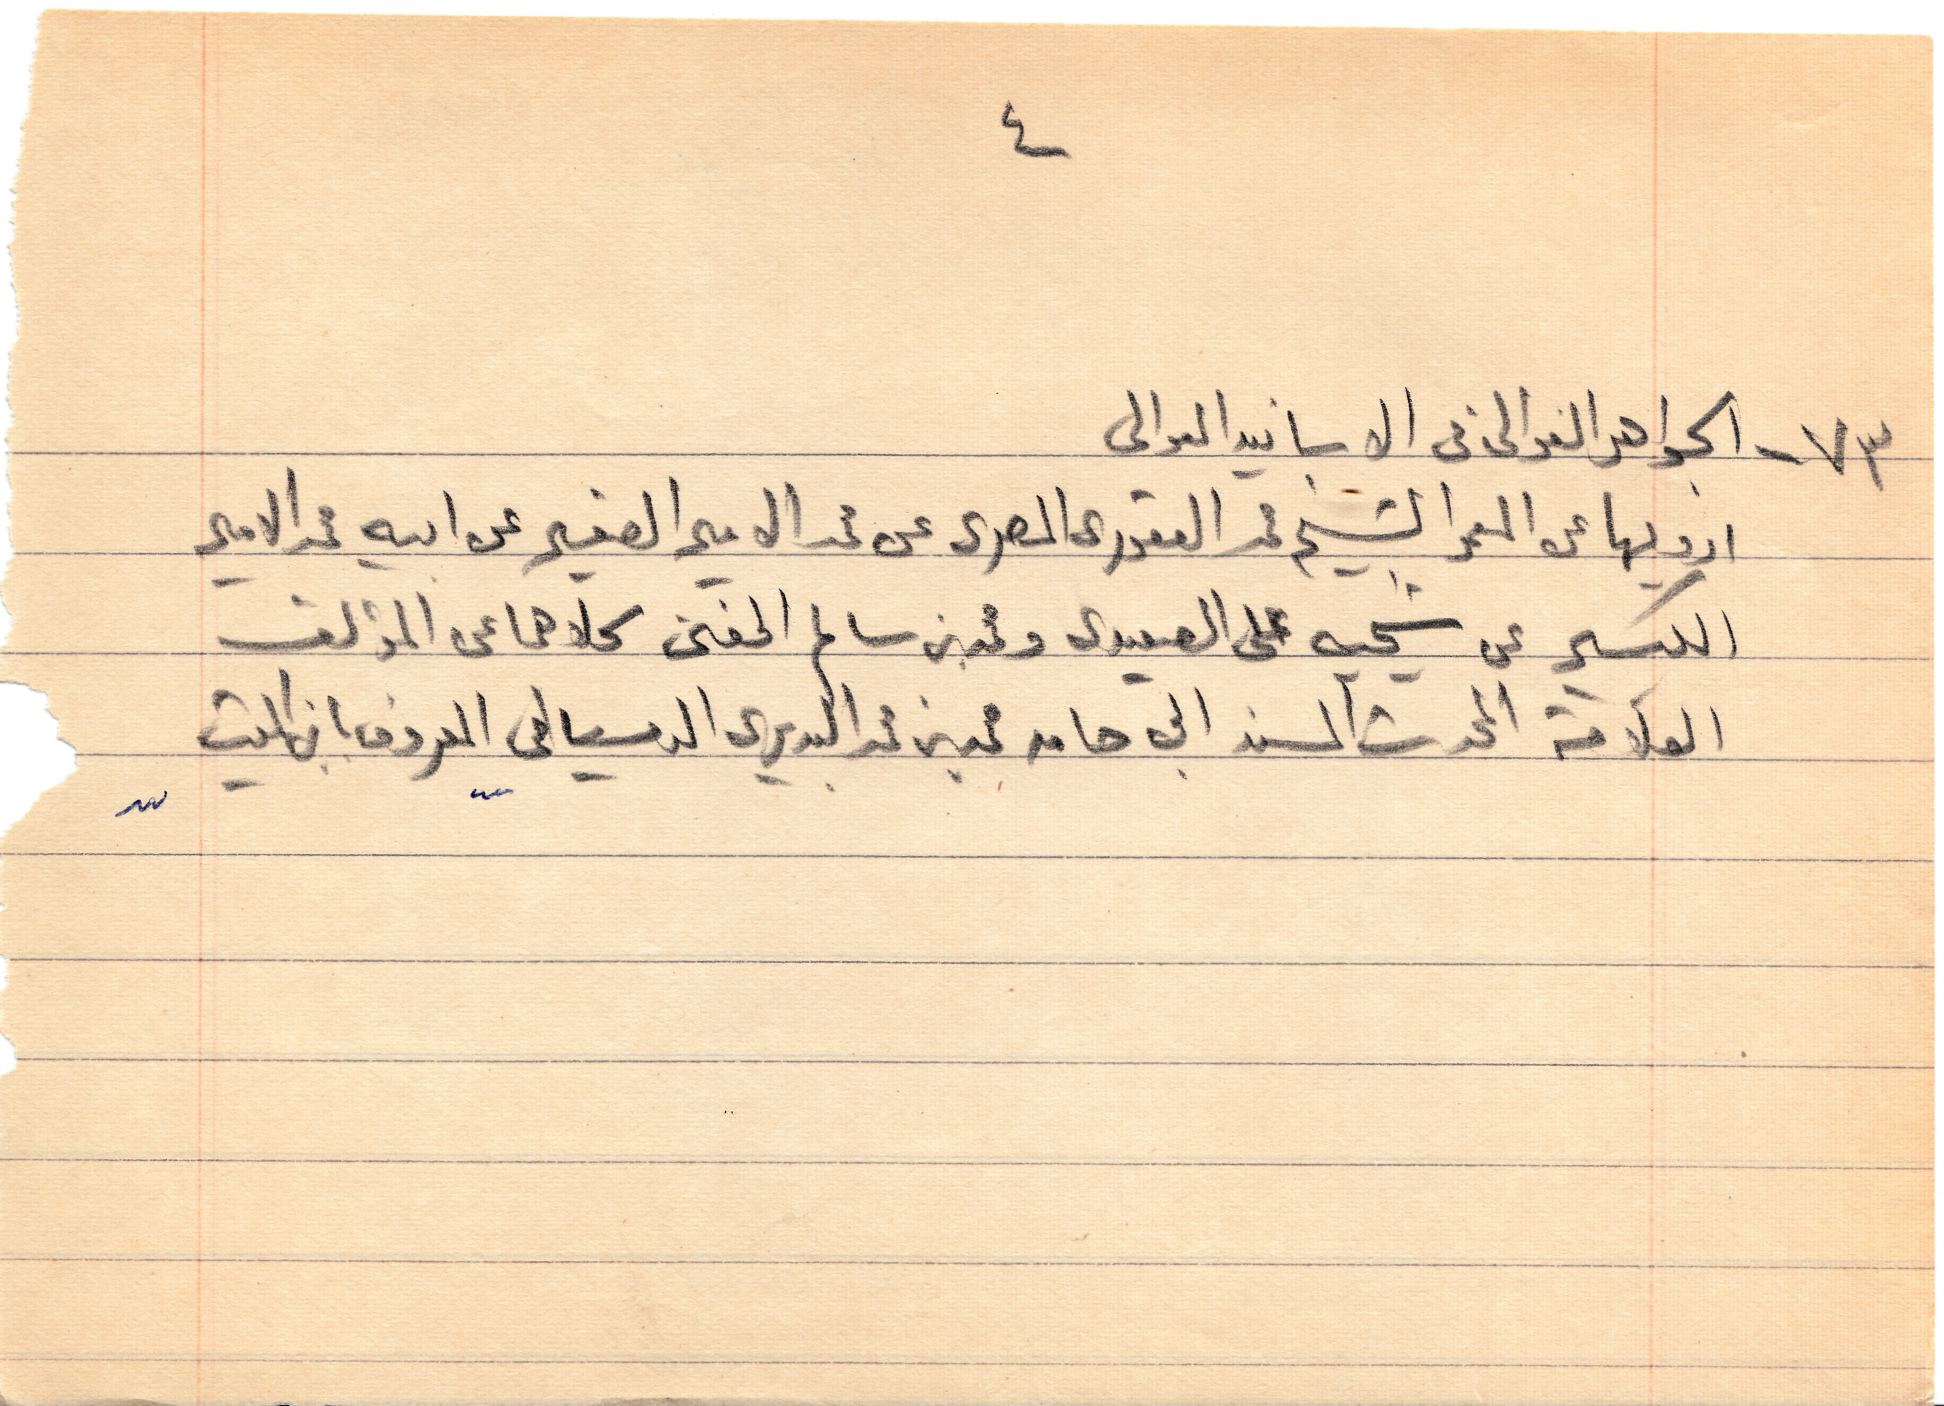 ٤
٧٣ - الجواهر الغوالى فى الاسانيد العوالى
ارويها عن المعمر الشيخ محمد العقورى المصرى عن محمد الامير الصغير عن ابيه محمد الامير
الكبير عن شيخيه على الصعيدى ومحمد بن سالم الحفنى كلاهما عن المؤلف
العلامة المحدث المسند ابى حامد محمد بن محمد البديرى الدمياطى المعروف بابن الميت